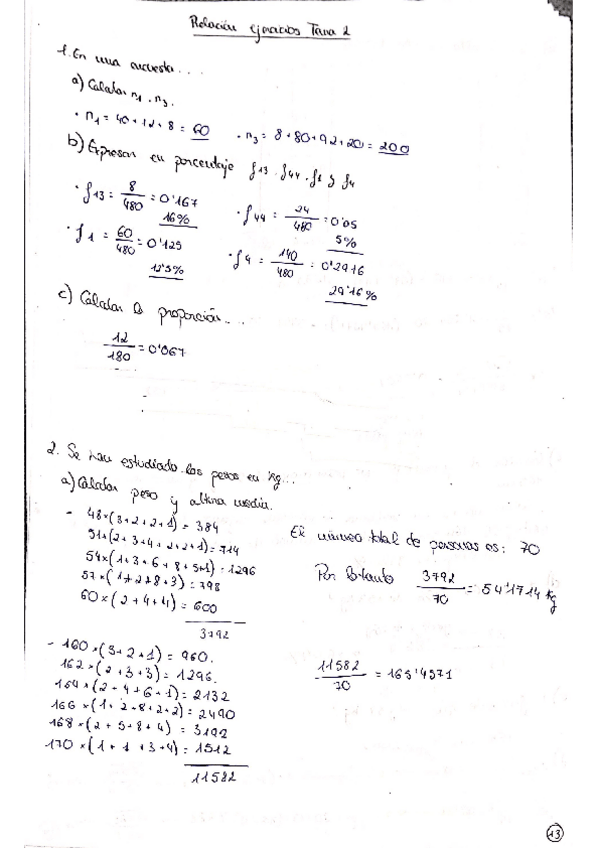 Relación ejercicios Tema 2
1. En una encuesta...
a) Calcular n1 . n3.
· n1 = 40+12+8 = 60 · n3 = 8+80+92+20 = 200
b) Expresar en porcentaje f13 . f44 . f1 y f4
· f13 = 8/480 = 0'167 · f44 = 24/480 = 0'05
16% 5%
· f1 = 60/480 = 0'125 · f4 = 140/480 = 0'2916
12'5% 29'16%
c) Calcular la proporción...
12/180 = 0'067
2. Se han estudiado los pesos en kg...
a) Calcular peso y altura media.
- 48×(3+2+2+1) = 384
51×(2+3+4+2+2+1) = 714 El número total de personas es: 70
54×(1+3+6+8+5+1) = 1296
57×(1+2+8+3) = 798 Por lo tanto 3792/70 = 54'1714 kg
60×(2+4+4) = 600
3792
- 160×(3+2+1) = 960.
162×(2+3+3) = 1296. 11582/70 = 165'4571
164×(2+4+6+1) = 2132
166×(1+2+8+2+2) = 2490
168×(2+5+8+4) = 3192
170×(1+1+3+4) = 1512
11582
13